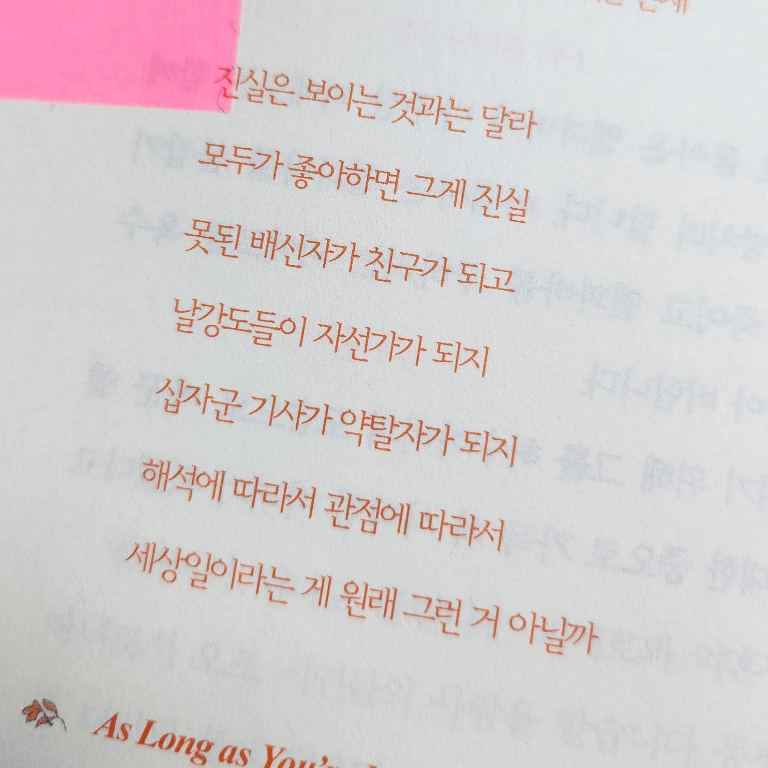 진실은 보이는 것과는 달라
모두가 좋아하면 그게 진실
못된 배신자가 친구가 되고
날강도들이 자선가가 되지
십자군 기사가 약탈자가 되지
해석에 따라서 관점에 따라서
세상일이라는 게 원래 그런 거 아닐까
As Long as